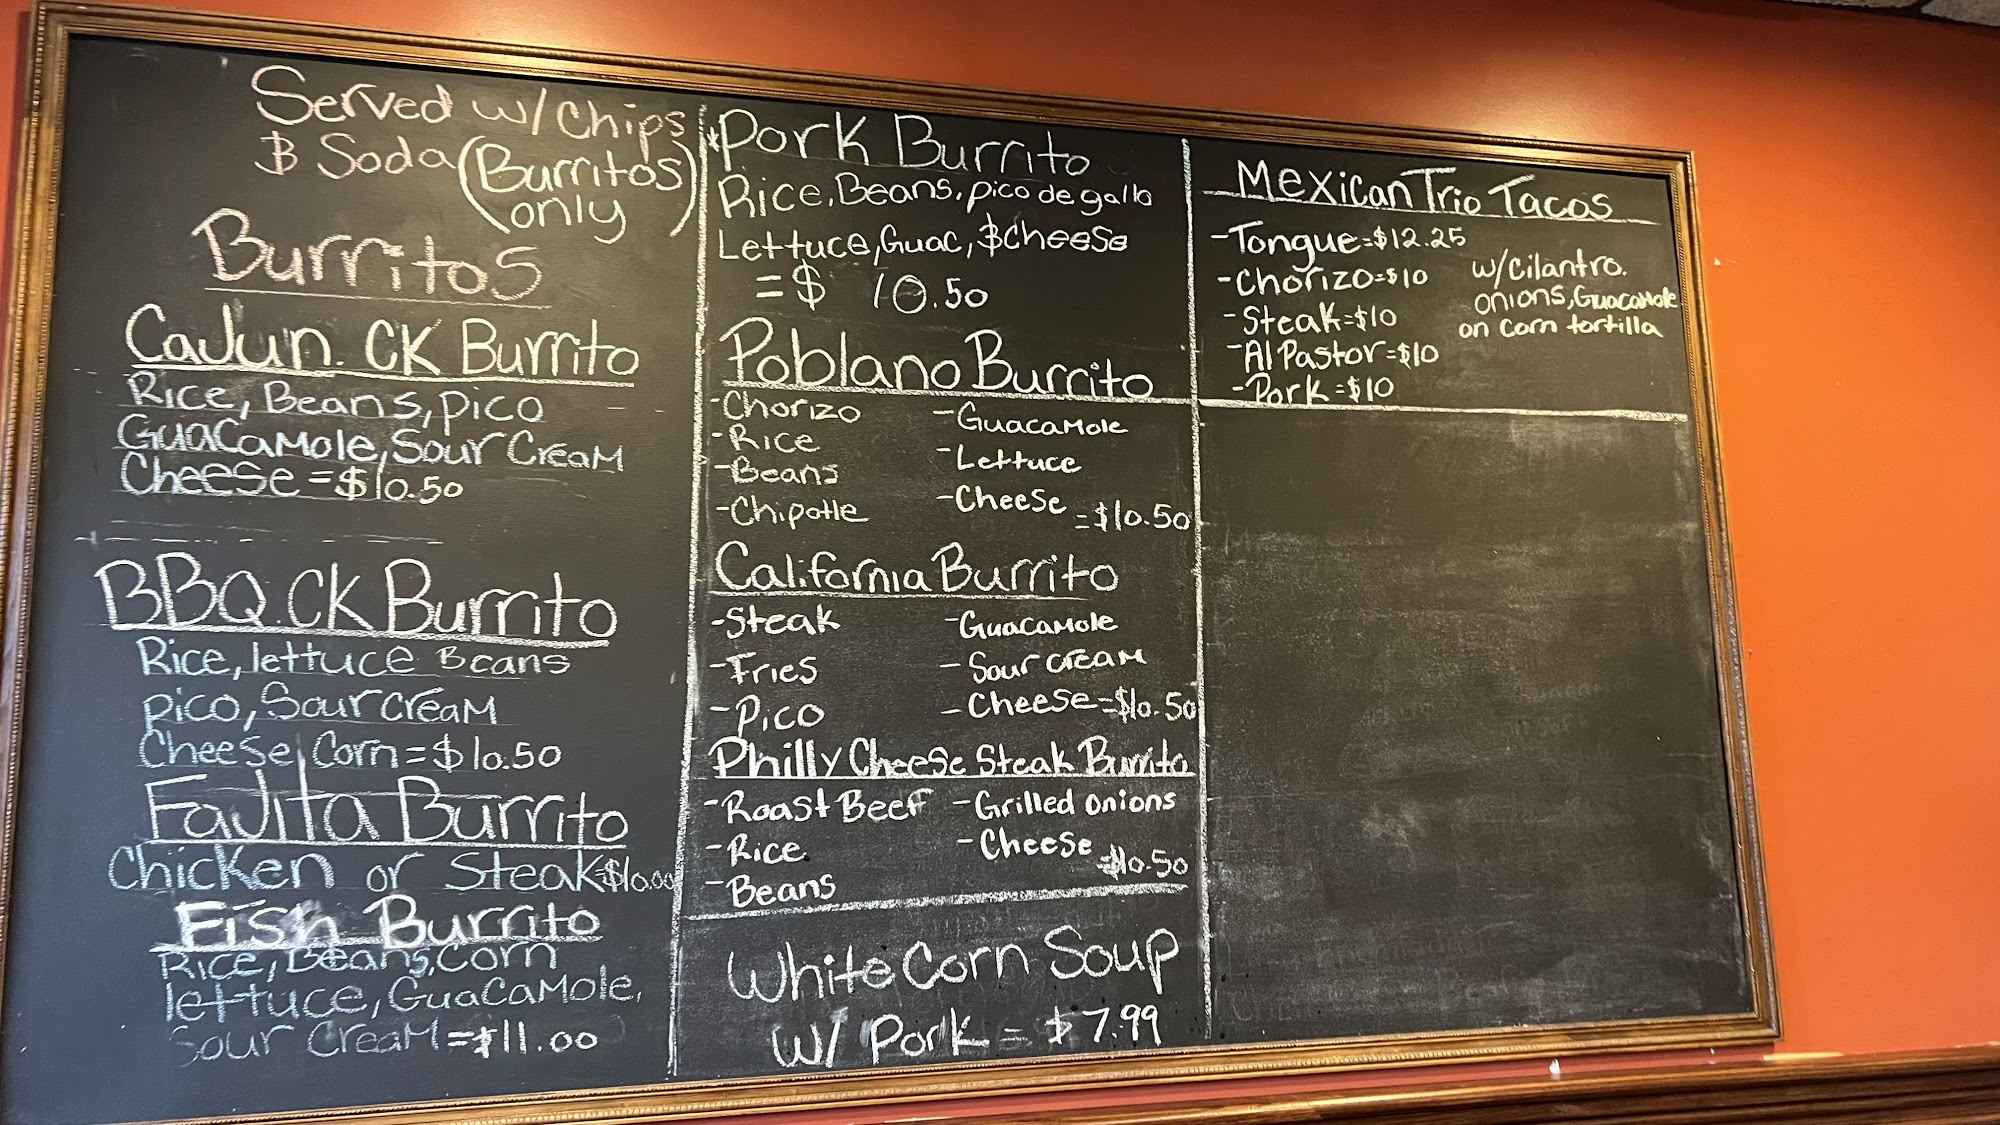 Served w/Chips
& Soda (Burritos
only)
Burritos
Cajun. CK Burrito
Rice, Beans, pico
Guacamole, Sour Cream
Cheese = $10.50
BBQ. CK Burrito
Rice, lettuce Beans
pico, Sour cream
Cheese, Corn = $10.50
Fajita Burrito
Chicken or Steak = $10.00
Fish Burrito
Rice, Beans, Corn
lettuce, Guacamole,
Sour Cream = $11.00
*Pork Burrito
Rice, Beans, pico de gallo
Lettuce, Guac, & Cheese
= $ 10.50
Poblano Burrito
-Chorizo -Guacamole
-Rice -Lettuce
-Beans -Cheese = $10.50
-Chipotle
California Burrito
-Steak -Guacamole
-Fries -Sour cream
-Pico -Cheese = $10.50
Philly Cheese Steak Burrito
-Roast Beef -Grilled onions
-Rice -Cheese = $10.50
-Beans
White Corn Soup
w/ Pork = $7.99
Mexican Trio Tacos
-Tongue = $12.25
-Chorizo = $10
-Steak = $10
-Al Pastor = $10
-Pork = $10
w/cilantro.
onions, Guacamole
on corn tortilla